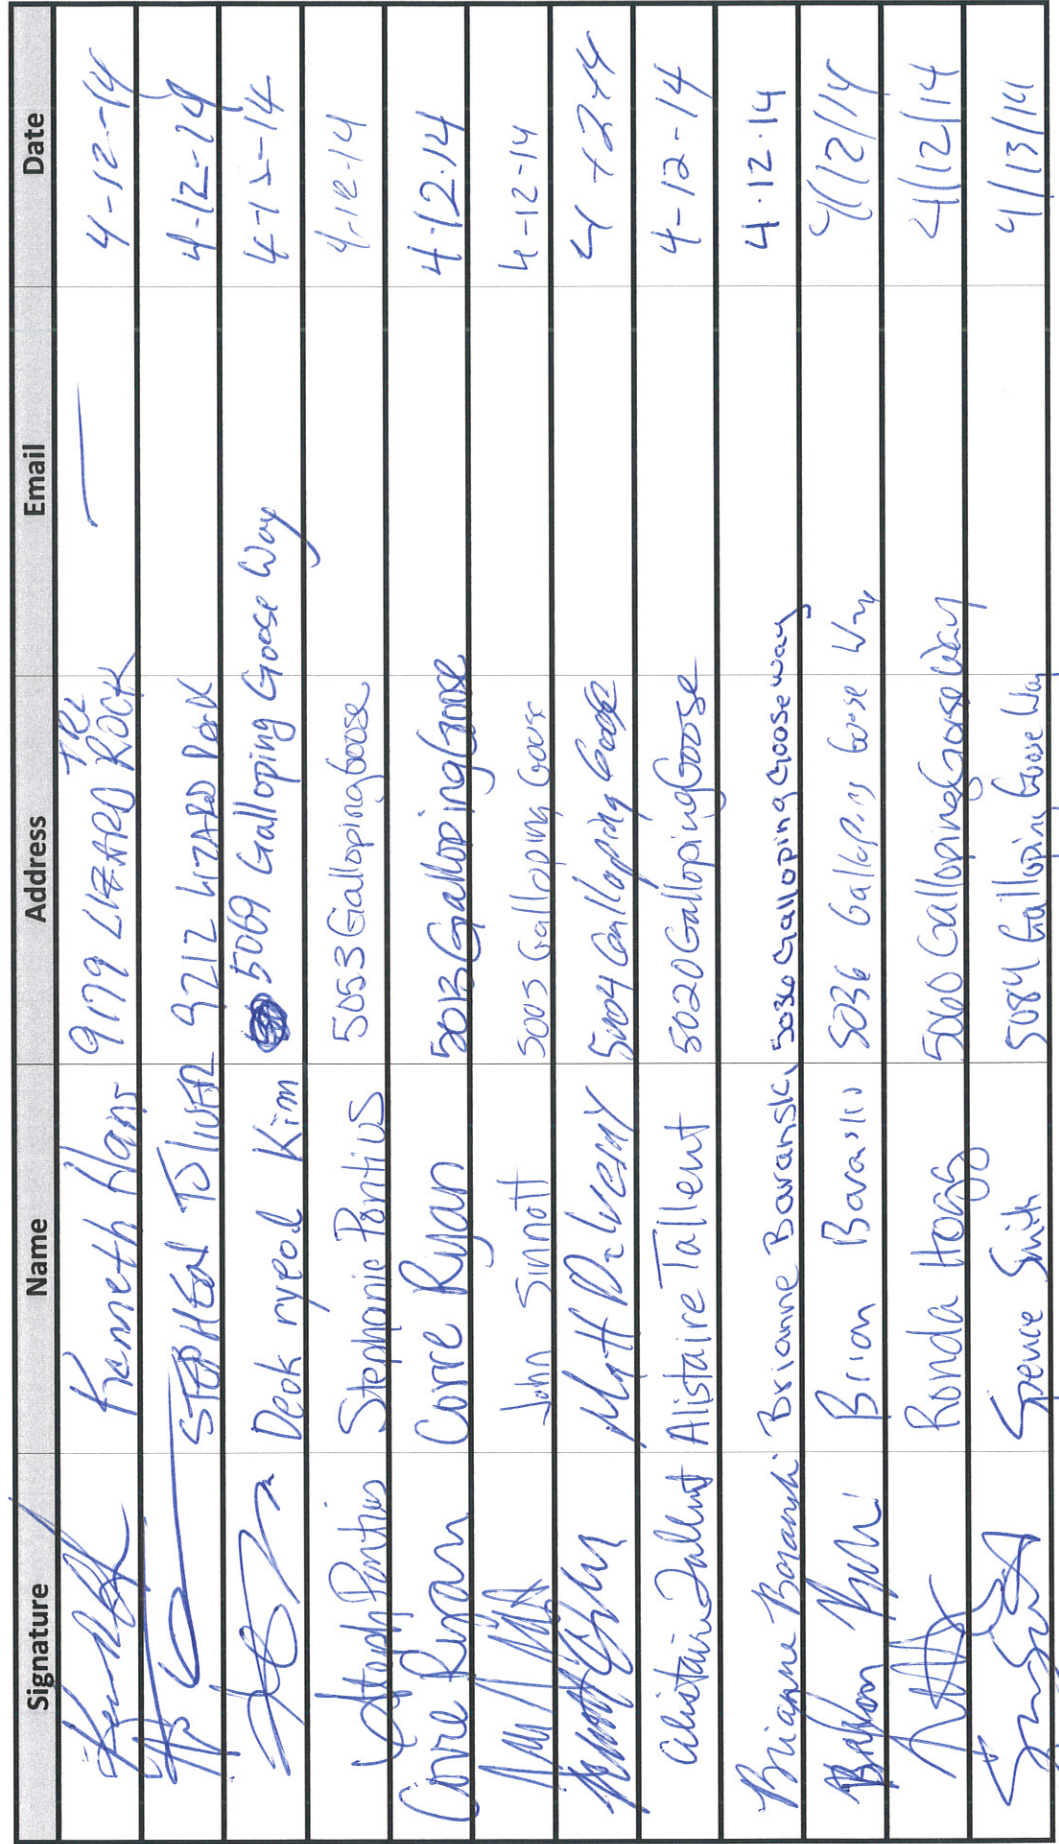 Signature Name Address Email Date
Kenneth Hans 9179 LIZARD ROCK TRL — 4-12-14
STEPHEN TOLIVER 9212 LIZARD ROCK 4-12-14
Deok ryeol Kim 5069 Galloping Goose Way 4-12-14
Stephanie Pontius 5053 Galloping Goose 4-12-14
Corre Ryan Corre Ryan 5013 Galloping Goose 4.12.14
John Sinnott 5003 Galloping Goose 4-12-14
Matt 5004 Galloping Goose 4-12-14
Alistaire Tallent Alistaire Tallent 5020 Galloping Goose 4-12-14
Brianne Baranski Brianne Baranski 5030 Galloping Goose Way 4.12.14
Brian 5036 Galloping Goose Way 4/12/14
Ronda Hogg 5060 Galloping Goose Way 4/12/14
Spence Smith 5084 Galloping Goose Way 4/13/14